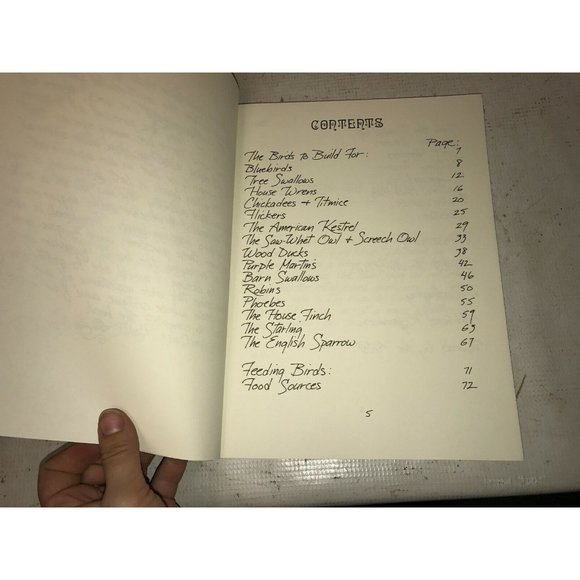 CONTENTS
Page:
The Birds to Build For: 7
Bluebirds 8
Tree Swallows 12
House Wrens 16
Chickadees + Titmice 20
Flickers 25
The American Kestrel 29
The Saw-Whet Owl + Screech Owl 33
Wood Ducks 38
Purple Martins 42
Barn Swallows 46
Robins 50
Phoebes 55
The House Finch 59
The Starling 63
The English Sparrow 67
Feeding Birds: 71
Food Sources 72
5